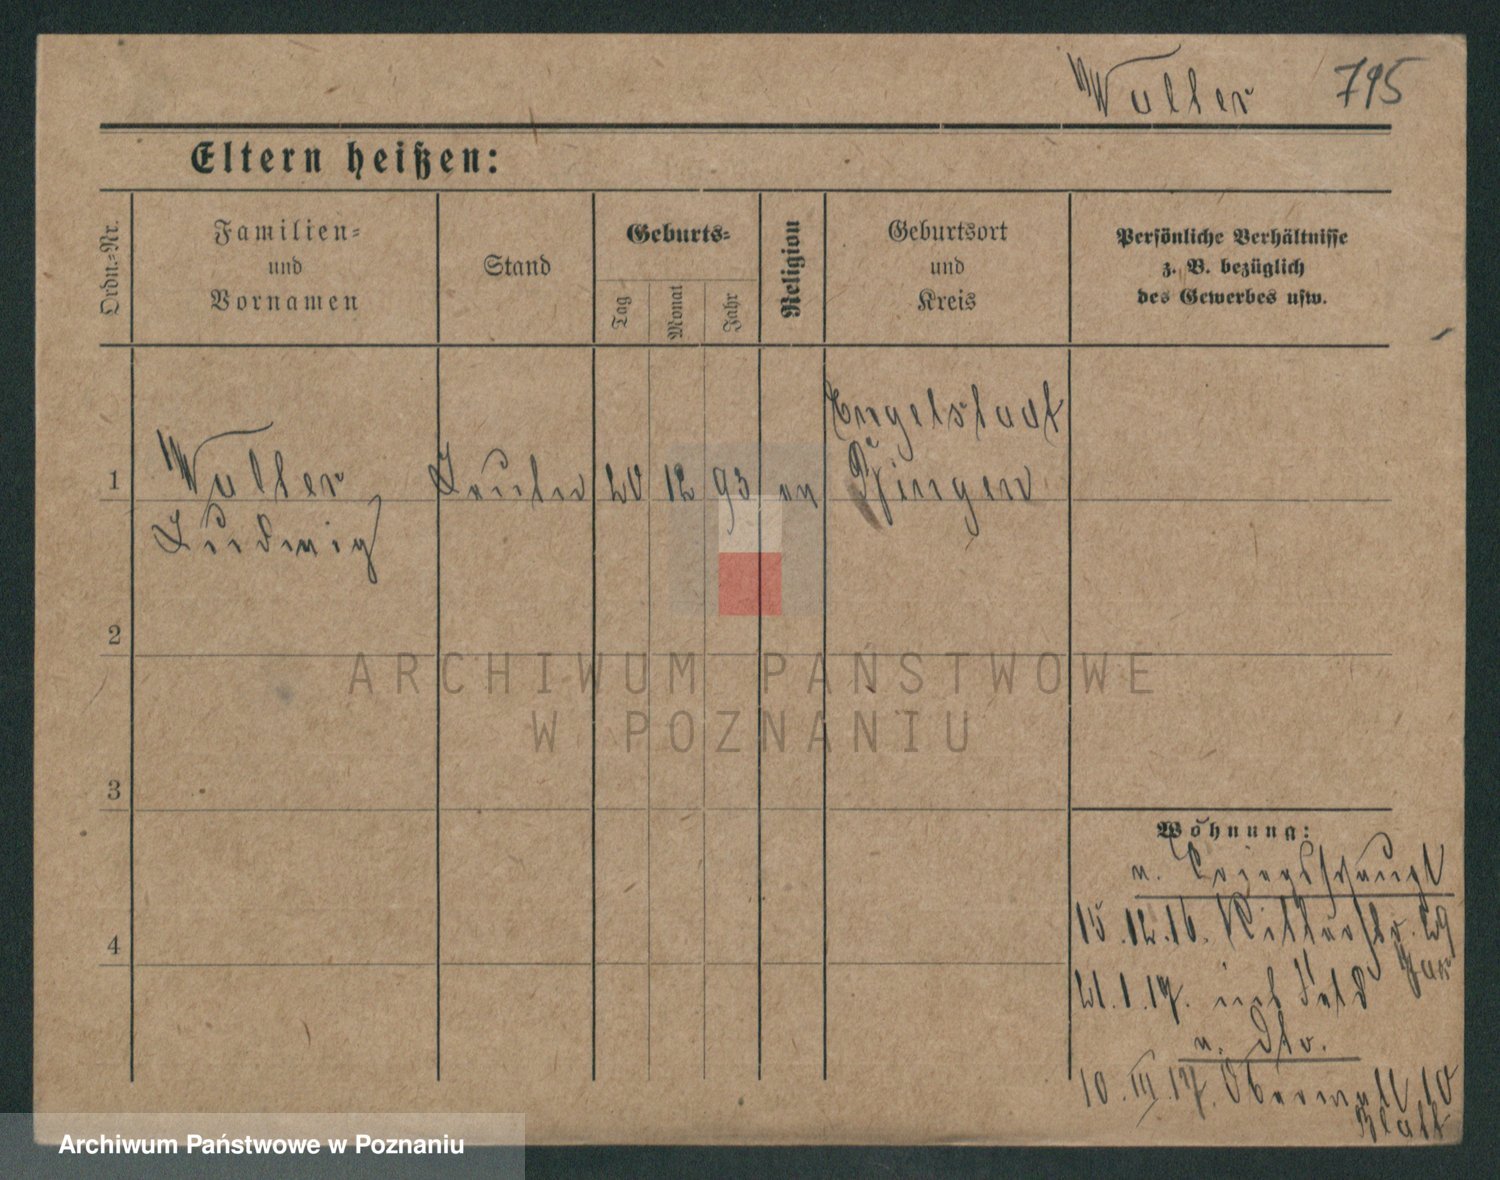 Walter 795
Eltern heißen:
Ordn.=Nr.
Familien=
und
Vornamen
Stand
Geburts=
Tag
Monat
Jahr
Religion
Geburtsort
und
Kreis
Persönliche Verhältnisse
z. B. bezüglich
des Gewerbes usw.
Engelstadt
1 Walter 20 12 93 ev Bingen
Ludwig
2
ARCHIWUM PAŃSTWOWE
W POZNANIU
3
Wohnung:
v.
15.12.16. Ritterstr. 29
21.1.17. ins Feld
v. dto.
10.III.17. Oberwall 10
4
Archiwum Państwowe w Poznaniu